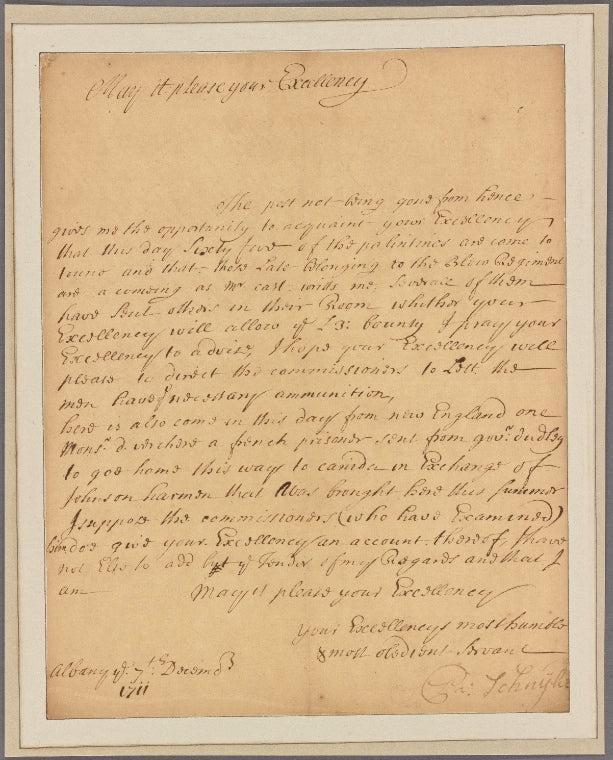 May it please your Excellency
The post not being gone from hence
gives me the opportunity to acquaint your Excellency
that this day Sixty five of the palintines are come to
towne and that those Late belonging to the Blew Regiment
are a comeing as mr cast me, severall of them
have sent others in their Room whither your
Excellency will allow ye £3: bounty I pray your
Excellency to advise, I hope your Excellency will
please to direct the commissioners to Lett the
men have ye necessary ammunition,
here is also come in this day from new England one
Monsr. d. verchere a french prisoner sent from govr. dudley
to goe home this way to canida in Exchange of
Johnson harmen that was brought here this summer
I suppose the commissioners (who have Examined)
him doe give your Excellency an account thereof, I have
not Else to add but ye Tender of my Regards and that I
am May it please your Excellency
your Excellencys most humble
& most obedient Servant
Albany ye. 7th. Decembr
1711
Schuyler